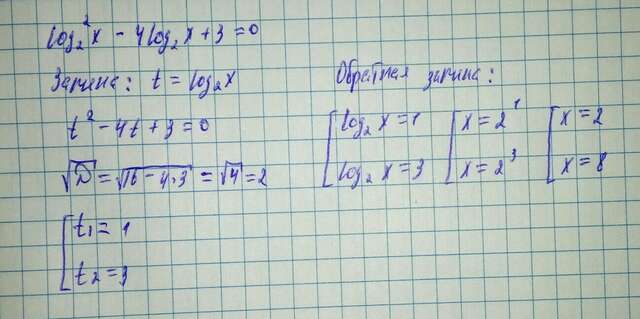 log₂²x - 4log₂x + 3 = 0
Замена: t = log₂x
t² - 4t + 3 = 0
√D = √16 - 4·3 = √4 = 2
[ t₁ = 1
t₂ = 3
Обратная замена:
[ log₂x = 1 [ x = 2¹ [ x = 2
log₂x = 3 x = 2³ x = 8